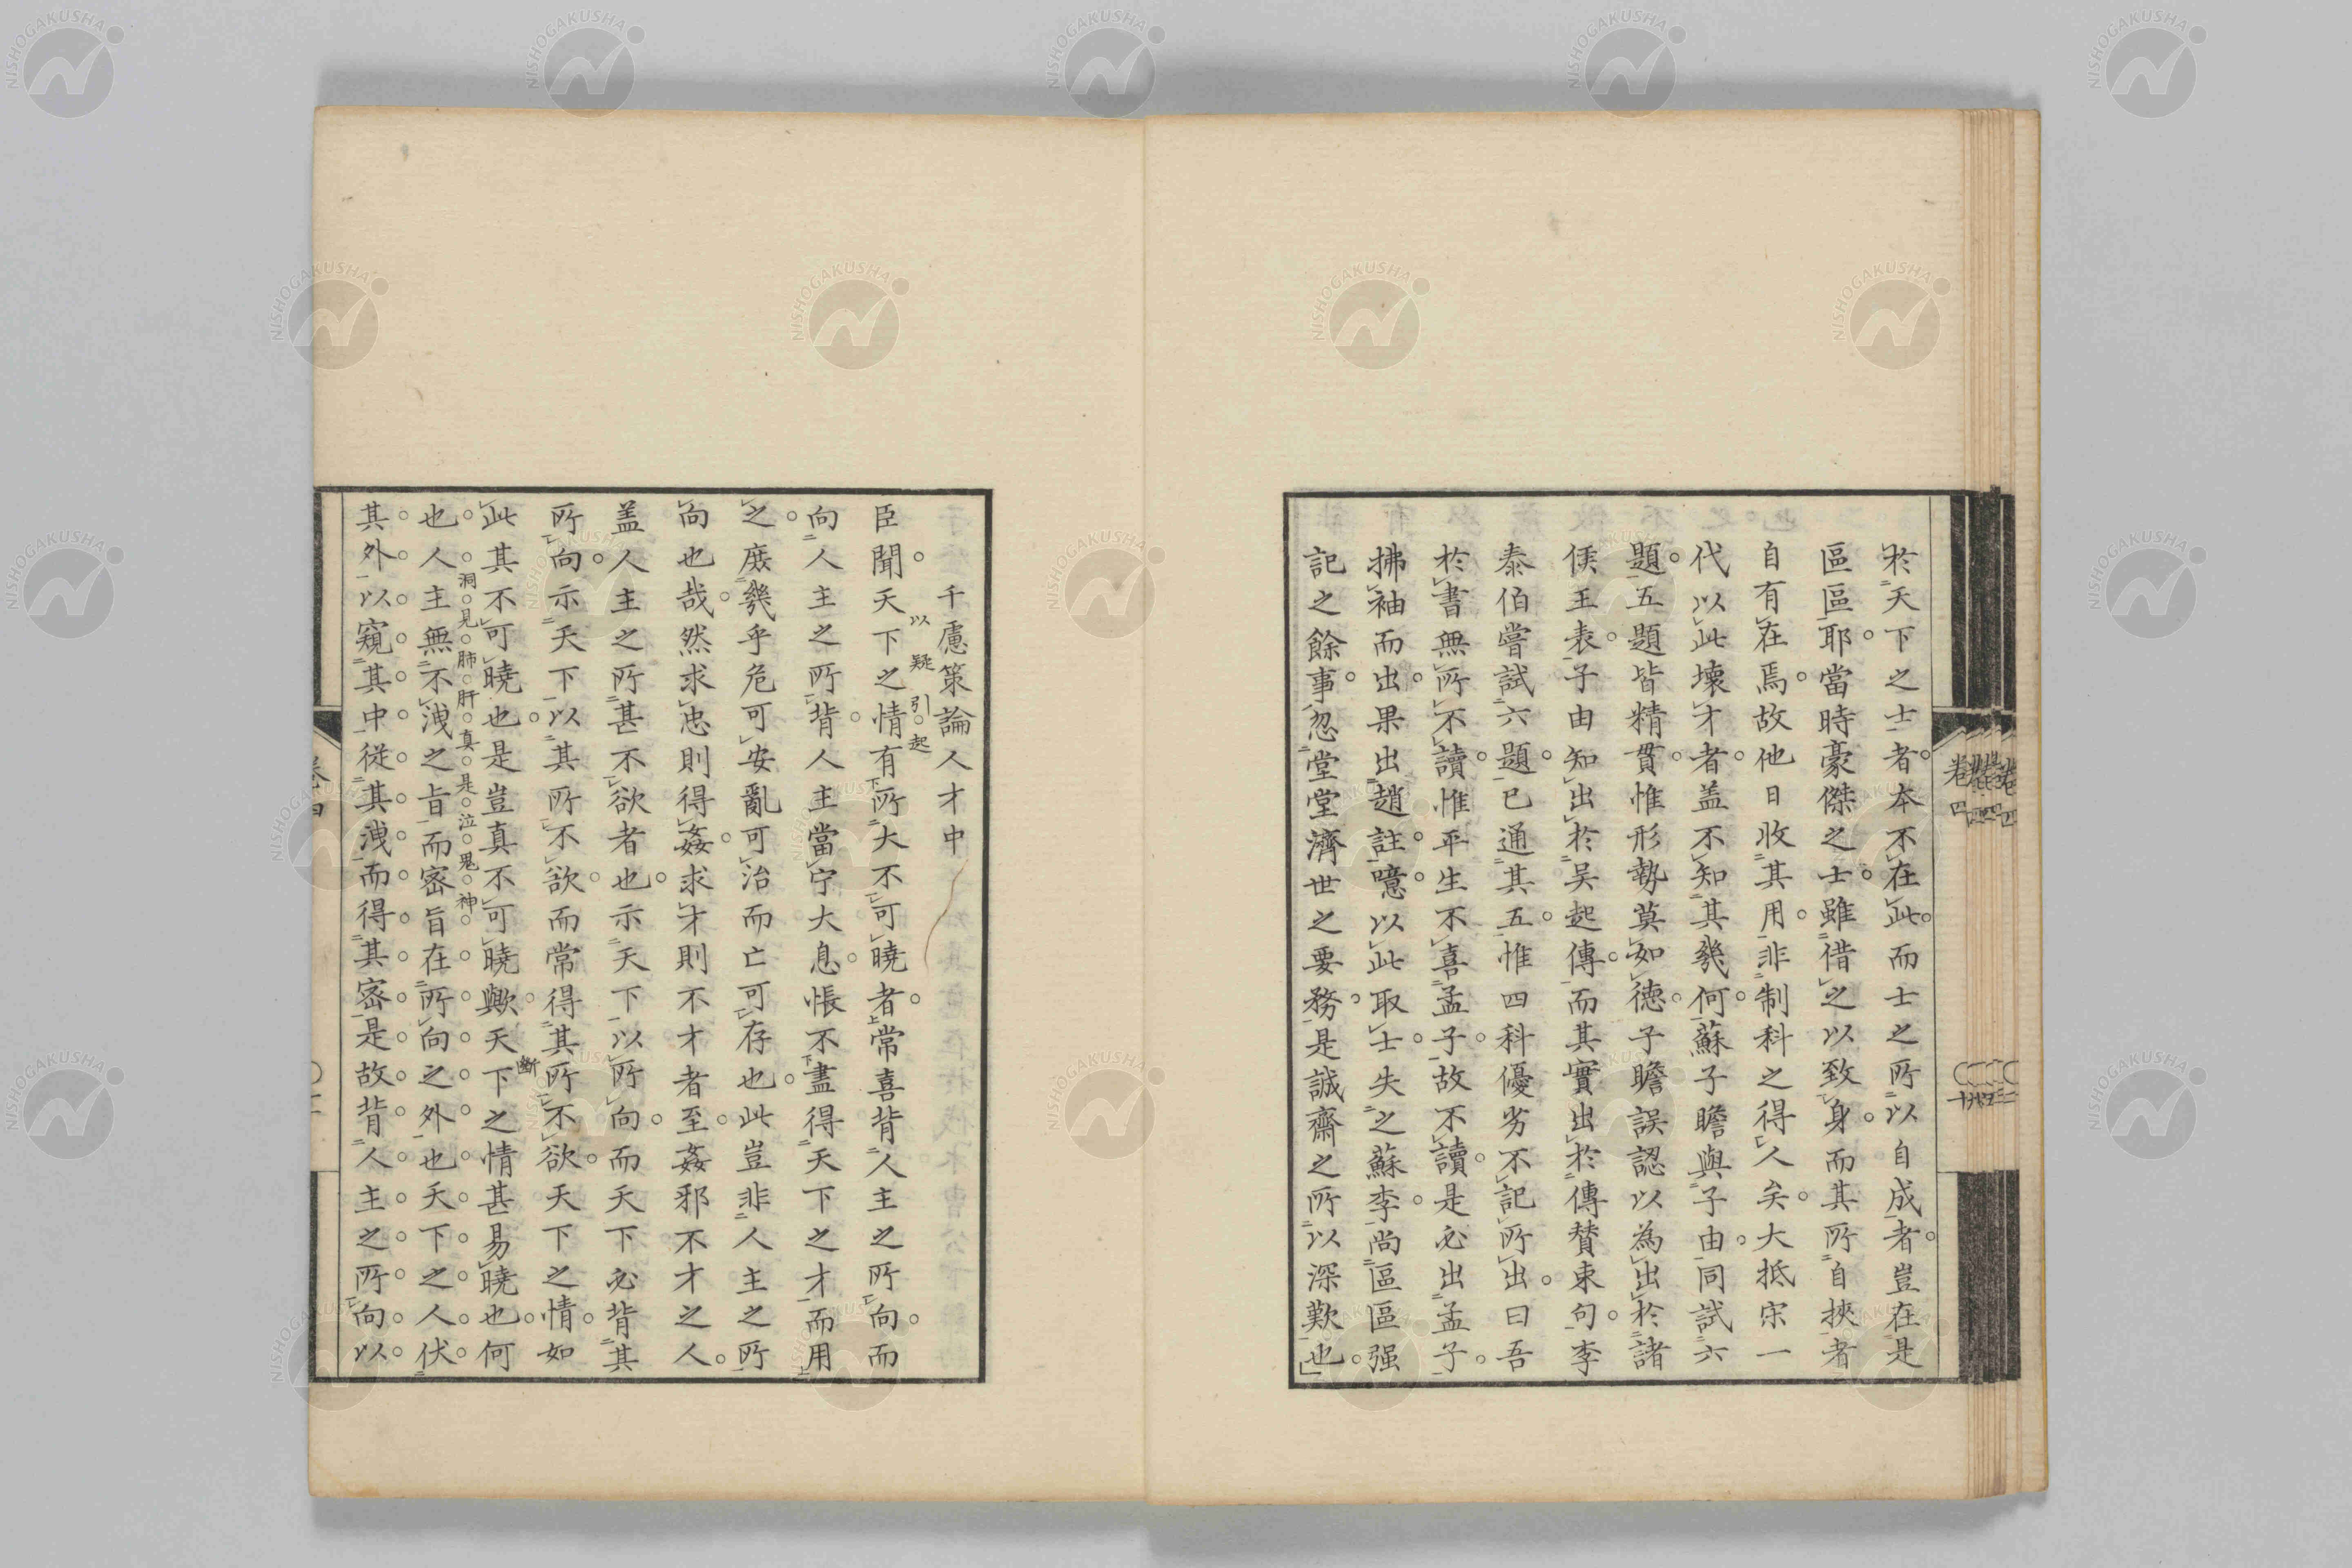 於天下之士者本不在此而士之所以自成者豈在是
區區耶當時豪傑之士雖借之以致身而其所自挾者
自有在焉故他日收其用非制科之得人矣大抵宋一
代以此壞才者蓋不知其幾何蘇子瞻與子由同試六
題五題皆精貫惟形勢莫如德子瞻誤認以為出於諸
侯王表子由知出於吴起傳而其實出於傳賛東句李
泰伯嘗試六題已通其五惟四科優劣不記所出曰吾
於書無所不讀惟平生不喜孟子故不讀是必出孟子
拂袖而出果出趙註噫以此取士失之蘇李尚區區强
記之餘事忽堂堂濟世之要務是誠齋之所以深歎也
千慮策論人才中
以疑引起
臣聞天下之情有所大不可曉者常喜背人主之所向而
向人主之所背人主當宁大息悵不盡得天下之才而用
之庶幾乎危可安亂可治而亡可存也此豈非人主之所
向也哉然求忠則得姦求才則不才者至姦邪不才之人
盖人主之所甚不欲者也示天下以所向而天下必背其
所向示天下以其所不欲而常得其所不欲天下之情如
斷
此其不可曉也是豈真不可曉歟天下之情甚易曉也何
洞見肺肝真是泣鬼神
也人主無不洩之旨而密旨在所向之外也天下之人伏
其外以窺其中從其洩而得其密是故背人主之所向以
卷四